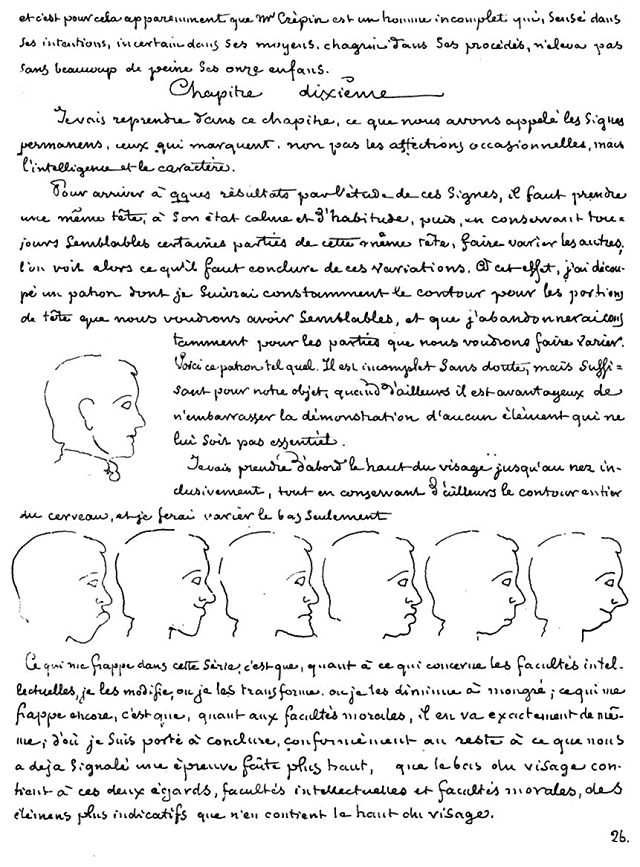 et c'est pour cela apparemment que Mr Crépin est un homme incomplet qui, sensé dans
ses intentions, incertain dans ses moyens, chagrin dans ses procédés, n'éleva pas
sans beaucoup de peine ses onze enfans.
Chapitre dixième
Je vais reprendre dans ce chapitre, ce que nous avons appelé les signes
permanens, ceux qui marquent, non pas les affections occasionnelles, mais
l'intelligence et le caractère.
Pour arriver à qques résultats par l'étude de ces signes, il faut prendre
une même tête, à son état calme et d'habitude, puis, en conservant tou-
jours semblables certaines parties de cette même tête, faire varier les autres,
l'on voit alors ce qu'il faut conclure de ces variations. A cet effet, j'ai décou-
pé un patron dont je suivrai constamment le contour pour les portions
de tête que nous voudrons avoir semblables, et que j'abandonnerai cons
tamment pour les parties que nous voudrons faire varier.
Voici ce patron tel quel. Il est incomplet sans doute, mais suffi=
sant pour notre objet, quand d'ailleurs il est avantageux de
n'embarrasser la démonstration d'aucun élément qui ne
lui soit pas essentiel.
Je vais prendre d'abord le haut du visage jusqu'au nez in-
clusivement, tout en conservant d'ailleurs le contour entier
du cerveau, et je ferai varier le bas seulement
Ce qui me frappe dans cette série, c'est que, quant à ce qui concerne les facultés intel-
lectuelles, je les modifie, ou je les transforme, ou je les diminue à mon gré ; ce qui me
frappe encore, c'est que, quant aux facultés morales, il en va exactement de mê-
me ; d'où je suis porté à conclure, conformément au reste à ce que nous
a deja signalé une épreuve faite plus haut, que le bas du visage con-
tient à ces deux égards, facultés intellectuelles et facultés morales, des
élémens plus indicatifs que n'en contient le haut du visage.
26.